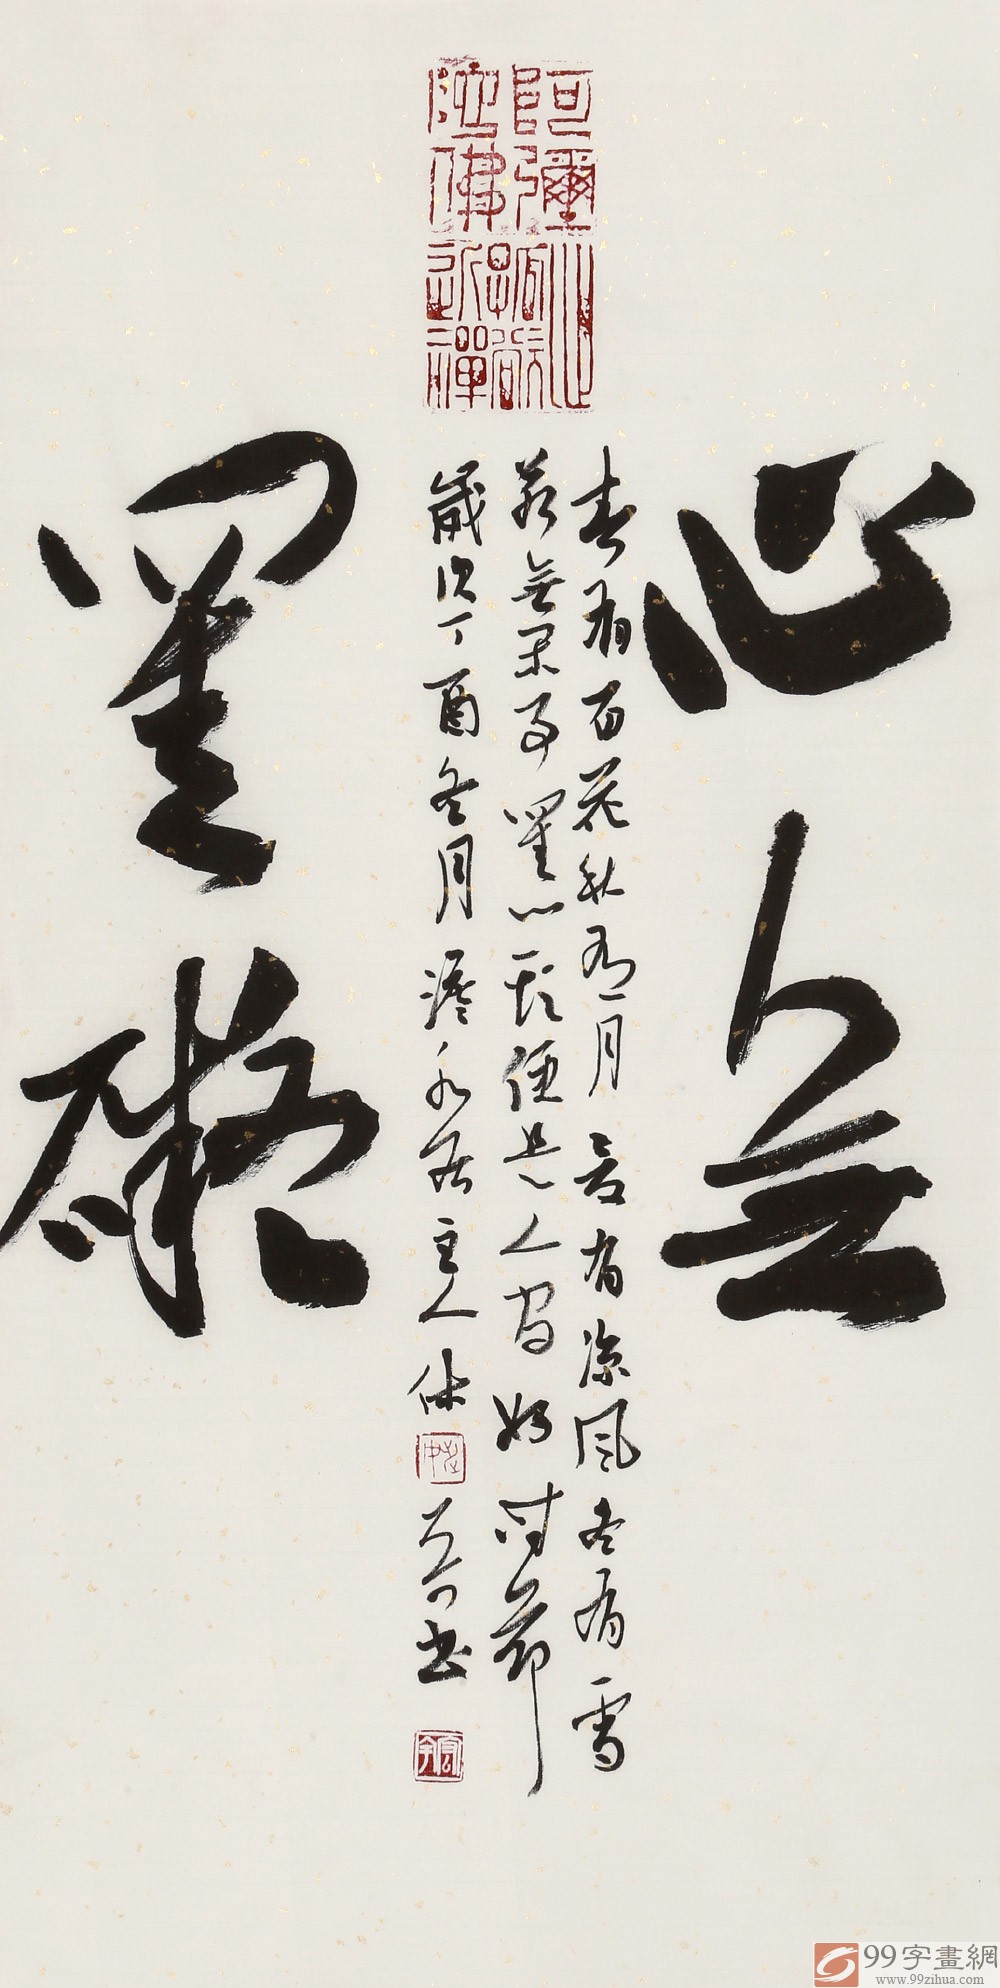 阿彌陀佛
心無
罣礙
春有百花秋有月夏有涼風冬有雪
若無閑事罣心頭便是人間好時節
歲次丁酉冬月居主人休書
99字畫網
www.99zihua.com